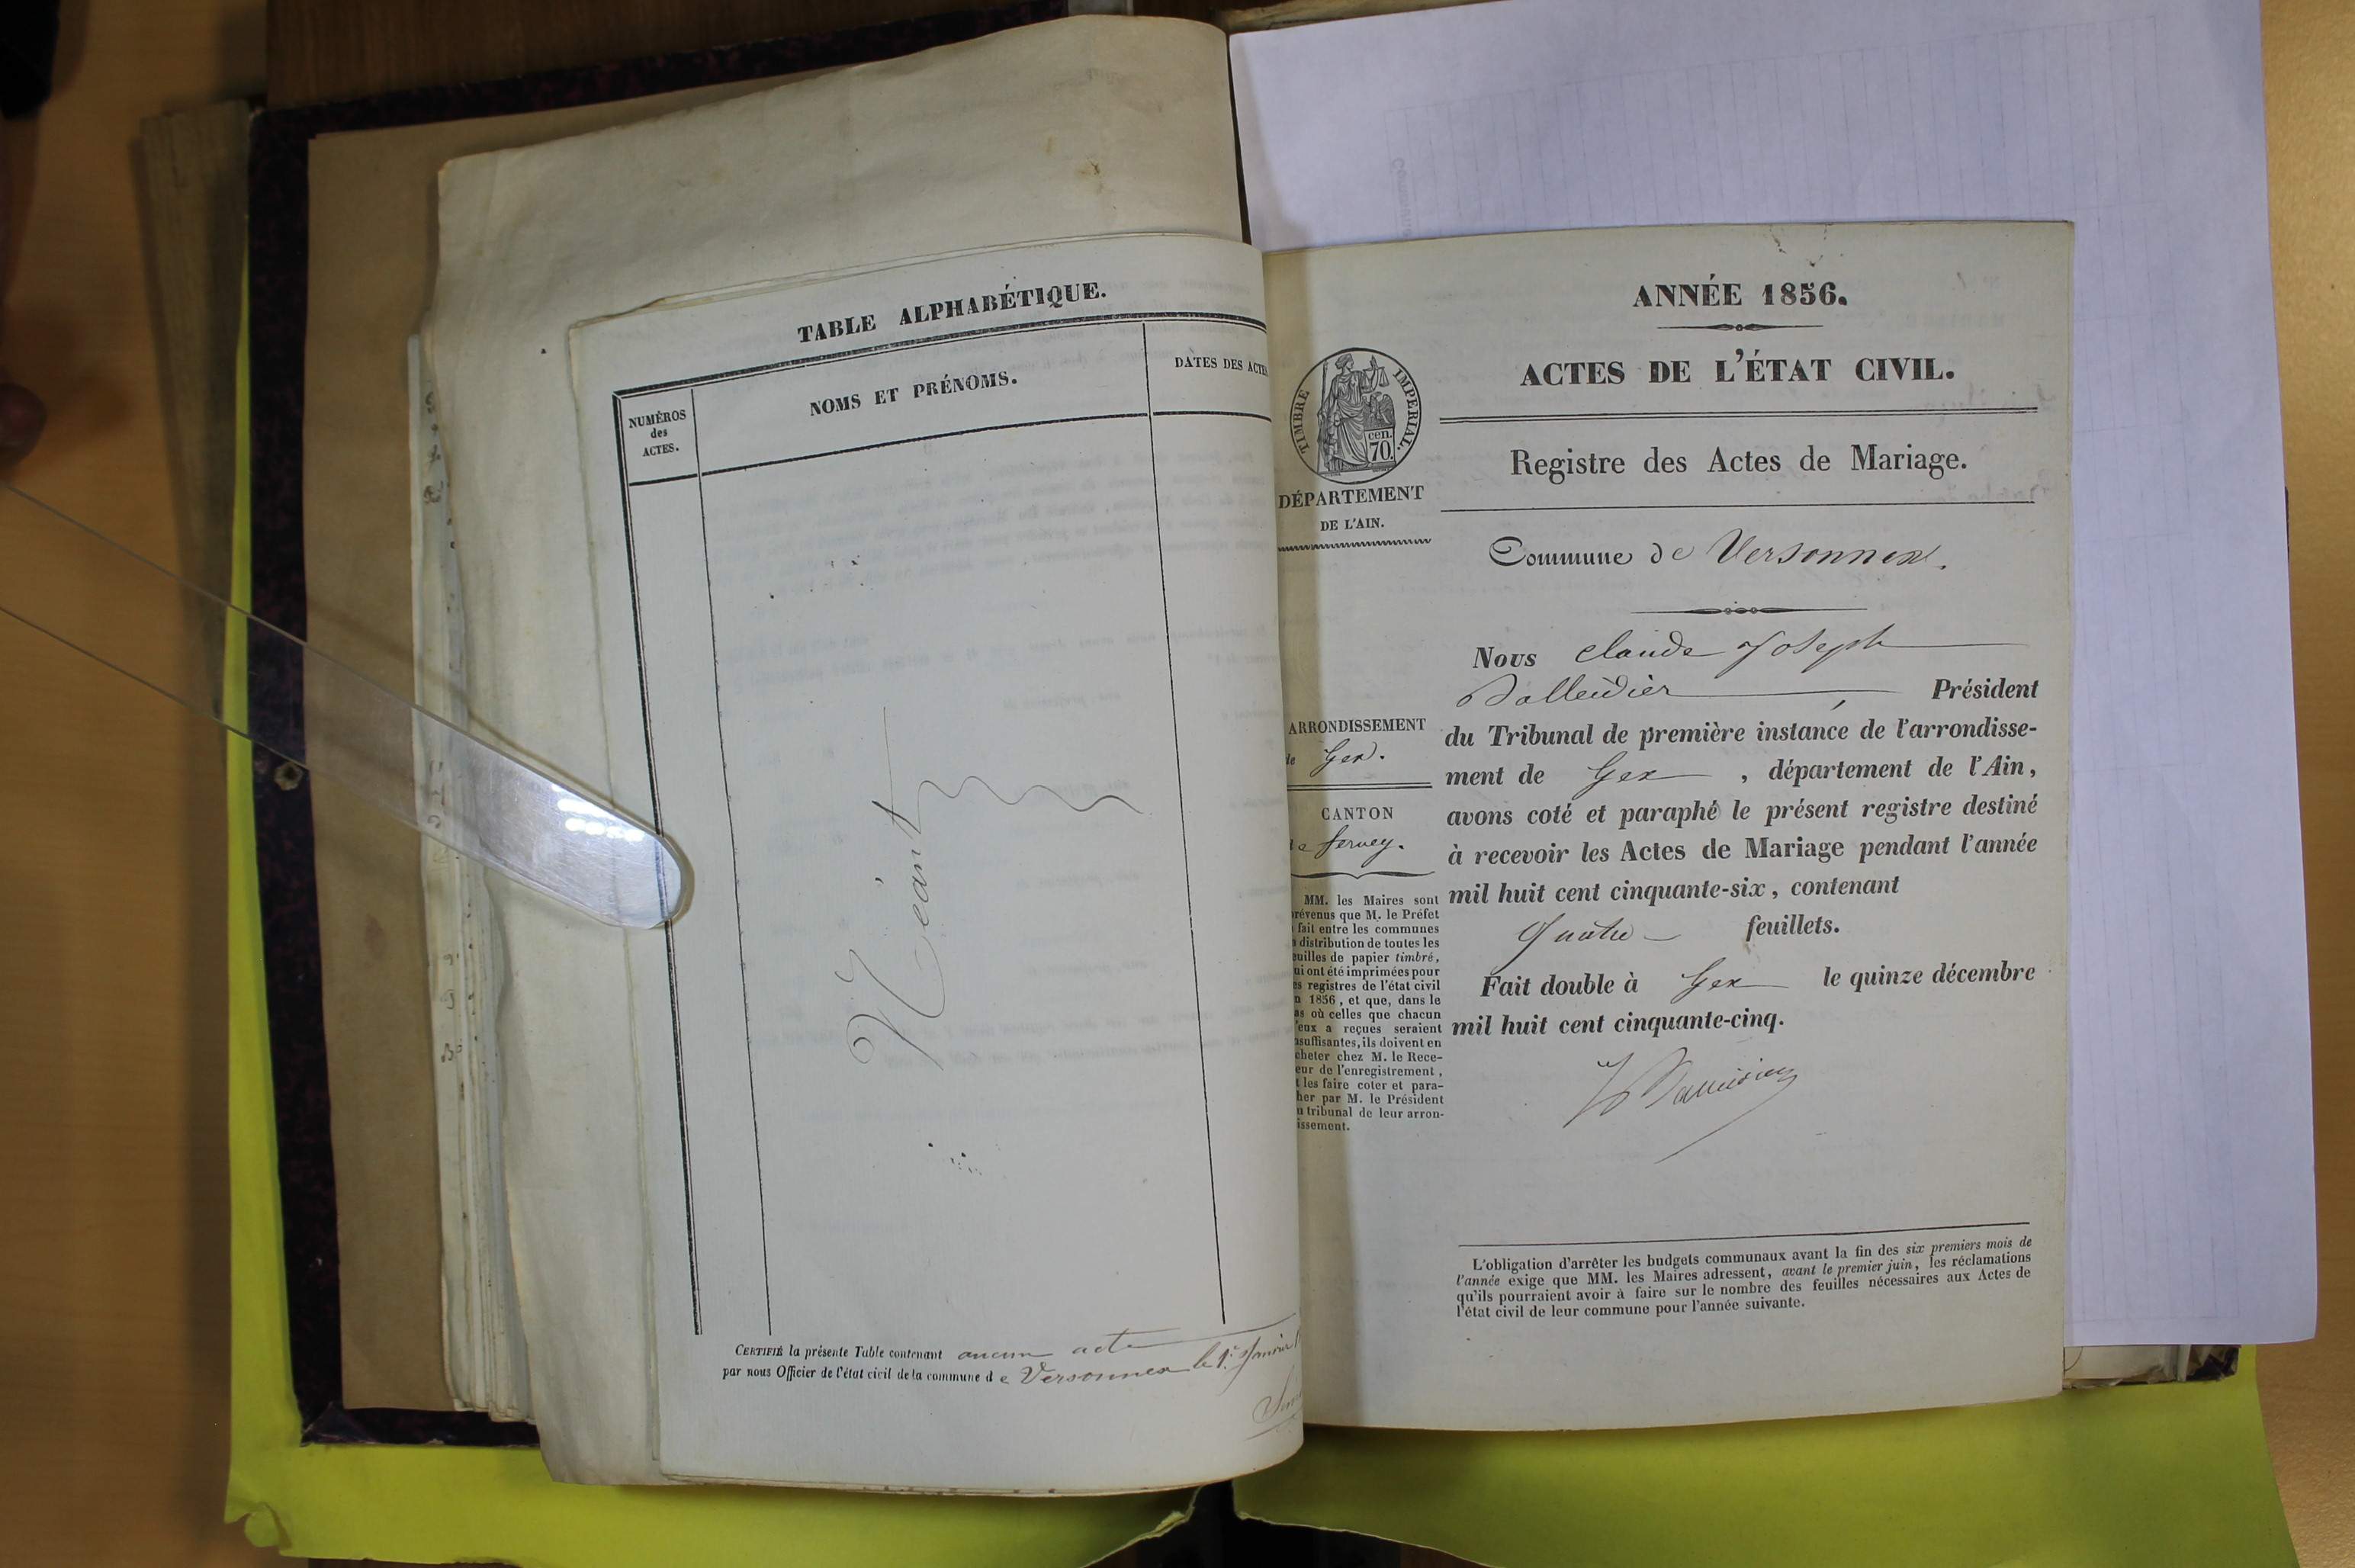 TABLE ALPHABÉTIQUE.
NUMÉROS
des
ACTES.
NOMS ET PRÉNOMS.
DATES DES ACTES
Néant
CERTIFIÉ la présente Table contenant aucun acte
par nous Officier de l'état civil de la commune de Versonnex le 1er Janvier
ANNÉE 1856.
ACTES DE L'ÉTAT CIVIL.
TIMBRE IMPERIAL.
70 cen.
DÉPARTEMENT
DE L'AIN.
Registre des Actes de Mariage.
Commune de Versonnex.
Nous Claude Joseph
Président
du Tribunal de première instance de l'arrondisse-
ment de Gex, département de l'Ain,
avons coté et paraphé le présent registre destiné
à recevoir les Actes de Mariage pendant l'année
mil huit cent cinquante-six, contenant
quatre feuillets.
Fait double à Gex le quinze décembre
mil huit cent cinquante-cinq.
ARRONDISSEMENT
de Gex.
CANTON
de ferney.
MM. les Maires sont
prévenus que M. le Préfet
fait entre les communes
distribution de toutes les
feuilles de papier timbré,
qui ont été imprimées pour
les registres de l'état civil
1856, et que, dans le
cas où celles que chacun
d'eux a reçues seraient
insuffisantes, ils doivent en
acheter chez M. le Rece-
veur de l'enregistrement,
et les faire coter et para-
pher par M. le Président
du tribunal de leur arron-
dissement.
L'obligation d'arrêter les budgets communaux avant la fin des six premiers mois de
l'année exige que MM. les Maires adressent, avant le premier juin, les réclamations
qu'ils pourraient avoir à faire sur le nombre des feuilles nécessaires aux Actes de
l'état civil de leur commune pour l'année suivante.